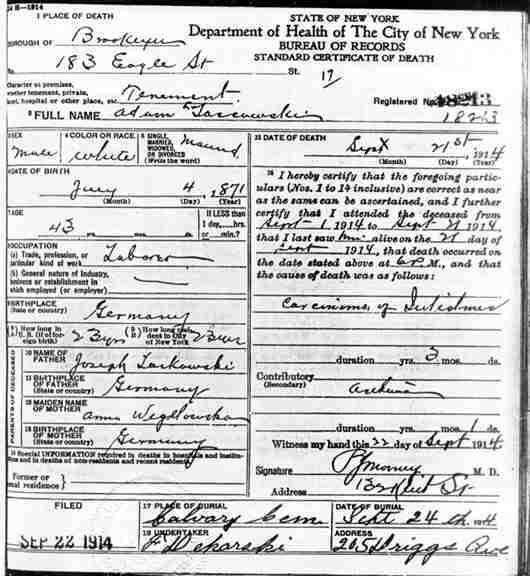 24 H-1914
1 PLACE OF DEATH
STATE OF NEW YORK
Department of Health of The City of New York
BUREAU OF RECORDS
STANDARD CERTIFICATE OF DEATH
BOROUGH OF Brooklyn
No. 183 Eagle St St. 17
Character of premises,
whether tenement, private,
hotel, hospital or other place, etc. Tenement
Registered No. 18213
18213
2 FULL NAME Adam
3 SEX
male
4 COLOR OR RACE
white
5 SINGLE,
MARRIED,
WIDOWED,
OR DIVORCED
(Write the word)
Married
6 DATE OF BIRTH
4, 1871
(Month) (Day) (Year)
7 AGE
43 yrs. mos. ds.
If LESS than
1 day, hrs.
or min.?
8 OCCUPATION
(a) Trade, profession, or
particular kind of work Laborer
(b) General nature of industry,
business or establishment in
which employed (or employer)
9 BIRTHPLACE
(State or country) Germany
(A) How long in
U. S. (if of for-
eign birth) 23 yrs
(B) How long resi-
dent in City
of New York 23
PARENTS OF DECEASED
10 NAME OF
FATHER Joseph
11 BIRTHPLACE
OF FATHER
(State or country) Germany
12 MAIDEN NAME
OF MOTHER Anna
13 BIRTHPLACE
OF MOTHER
(State or country) Germany
14 Special INFORMATION required in deaths in hospitals and institu-
tions and in deaths of non-residents and recent residents
Former or
usual residence
15 DATE OF DEATH
Sept 21st, 1914
(Month) (Day) (Year)
16 I hereby certify that the foregoing partic-
ulars (Nos. 1 to 14 inclusive) are correct as near
as the same can be ascertained, and I further
certify that I attended the deceased from
Sept 1 1914 to Sept 21 1914,
that I last saw him alive on the 21 day of
Sept 1914, that death occurred on
the date stated above at 6 P. M., and that
the cause of death was as follows:
Carcinoma of Intestines
duration yrs. 3 mos. ds.
Contributory
(Secondary)
duration yrs. mos. 1 ds.
Witness my hand this 22 day of Sept 1914
Signature M. D.
Address St
FILED
SEP 22 1914
17 PLACE OF BURIAL
Calvary Cem
DATE OF BURIAL
Sept 24th 1914
18 UNDERTAKER
F Dekarski
ADDRESS
205 Driggs Ave